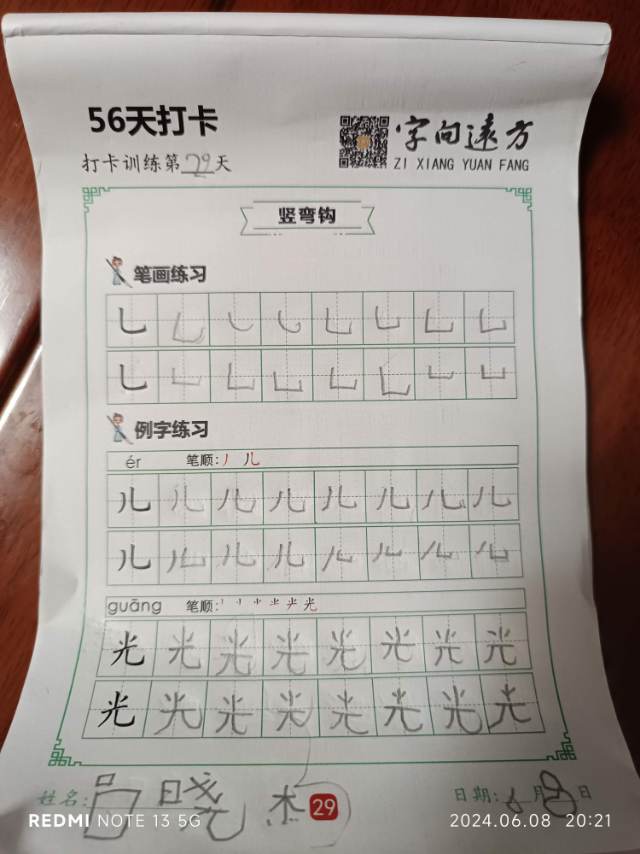 56天打卡
字向远方
打卡训练第29天
ZI XIANG YUAN FANG
竖弯钩
笔画练习
乚 乚 乚 乚 乚 乚 乚 乚
乚 乚 乚 乚 乚 乚 乚 乚
例字练习
ér 笔顺:丿 儿
儿 儿 儿 儿 儿 儿 儿 儿
儿 儿 儿 儿 儿 儿 儿 儿
guāng 笔顺:
光 光 光 光 光 光 光 光
光 光 光 光 光 光 光 光
姓名: 吕晓杰 29 日期: 6月8日
REDMI NOTE 13 5G 2024.06.08 20:21